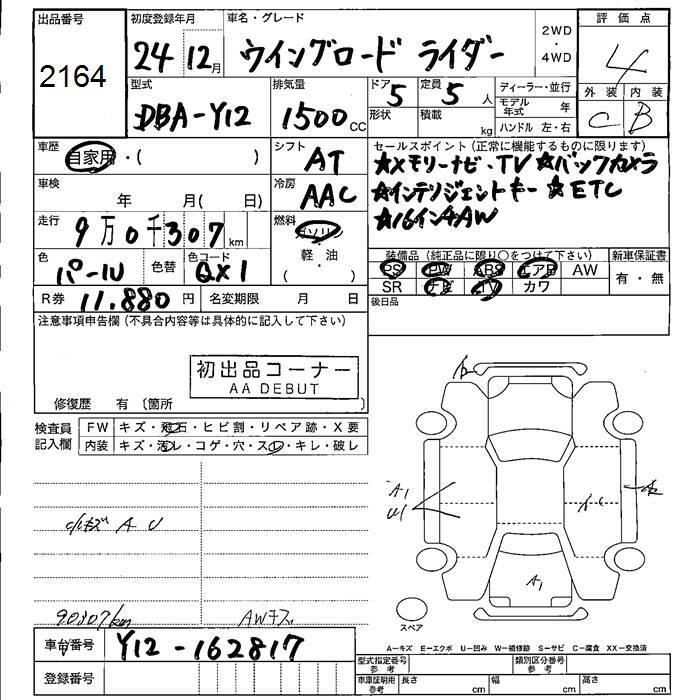 出品番号 初度登録年月 車名・グレード 2WD・4WD 評価点
2164 24年12月 ウイングロード ライダー 4
型式 排気量 ドア 定員 ディーラー・並行 外装 内装
DBA-Y12 1500cc 5 5人 モデル年式 年 C B
形状 積載 kg ハンドル 左・右
車歴 シフト セールスポイント (正常に機能するものに限ります)
自家用・( ) AT ☆メモリーナビ・TV ☆バックカメラ
車検 冷房 ☆インテリジェントキー ☆ETC
年 月( 日) AAC ☆16インチAW
走行 燃料
9万0千307km ガソリン
色 色替 色コード 軽・油 装備品 (純正品に限り○をつけて下さい) 新車保証書
パール QX1 ( ) PS PW ABS エアB AW 有・無
R券 11.880円 名変期限 月 日 SR ナビ TV カワ
注意事項申告欄 (不具合内容等は具体的に記入して下さい) 後日品
初出品コーナー
AA DEBUT
修復歴 有 〔箇所 〕
検査員記入欄 FW キズ・飛石・ヒビ割・リペア跡・X要
内装 キズ・汚レ・コゲ・穴・スレ・キレ・破レ
A1
U1
小キズ A U
A1
90307km AWキズ
スペア
車台番号 Y12-162817
A-キズ E-エクボ U-凹み W-補修跡 S-サビ C-腐食 XX-交換済
登録番号 型式指定番号 参考 類別区分番号 参考
車庫証明用 参考 長さ cm 幅 cm 高さ cm